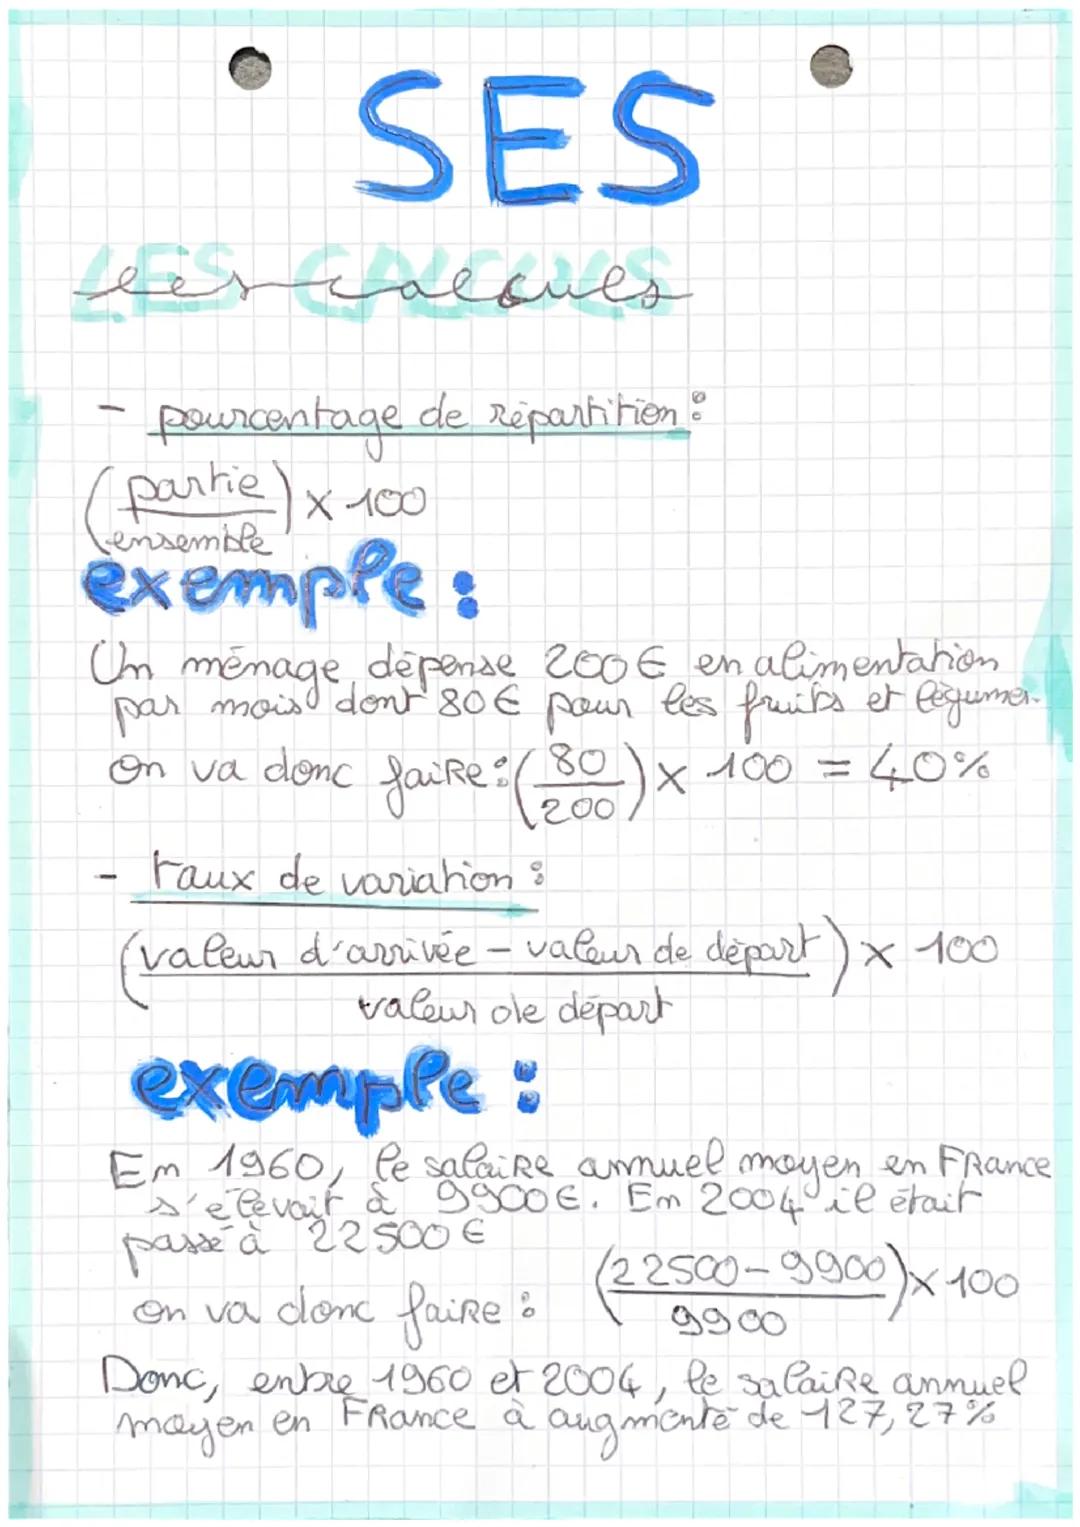 SES
LES CALCULS
les calculs
- pourcentage de répartition :
(partie / ensemble) × 100
exemple :
Un ménage dépense 200€ en alimentation
par mois dont 80€ pour les fruits et légumes.
On va donc faire : (80 / 200) × 100 = 40%
- taux de variation :
(valeur d'arrivée - valeur de départ / valeur de départ) × 100
exemple :
En 1960, le salaire annuel moyen en France
s'élevait à 9900€. En 2004 il était
passé à 22500€
on va donc faire : (22500-9900 / 9900) × 100
Donc, entre 1960 et 2004, le salaire annuel
moyen en France à augmenté de 127,27%